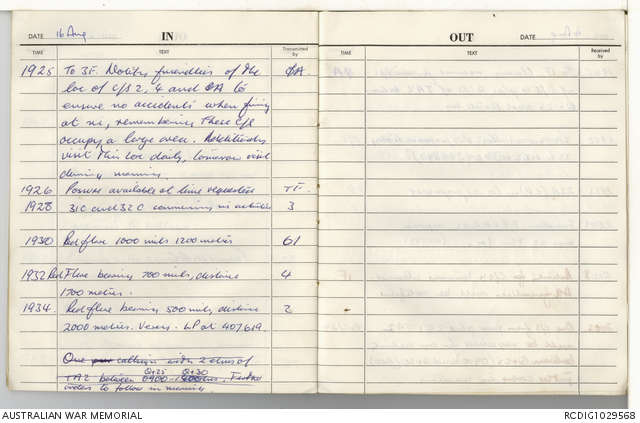 DATE 16 Aug IN
TIME TEXT Transmitted by
1925 To 3E. Notify friendlies of the ØA
loc of c/s 2, 4 and ØA to
ensure no accidents when firing
at ni, remembering these c/s
occupy a large area. Additionally
visit this loc daily, tomorrow visit
during morning.
1926 available at time requested
1928 31C and 32C commencing 3
1930 Red flare 1000 mils 1200 metres 61
1932 Red Flare bearing 700 mils, distance 4
1700 metres.
1934 Red flare bearing 500 mils, distance 2
2000 metres. LP at 407619.
One callsign 2 elms of
0425 0430
TAZ between 0400 - Further
orders to follow in morning
DATE OUT
TIME TEXT Received by
AUSTRALIAN WAR MEMORIAL
RCDIG1029568